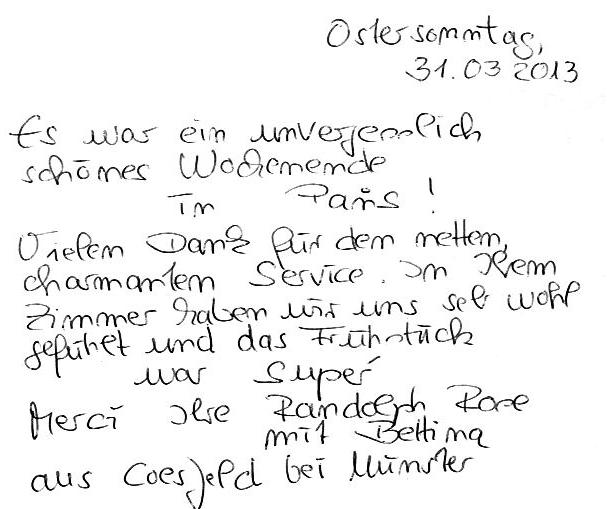 Ostersonntag,
31.03 2013
Es war ein unvergesslich
schönes Wochenende
in Paris!
Vielen Dank für den netten,
charmanten Service. In Ihren
Zimmer haben wir uns sehr wohl
gefühlt und das Frühstück
war Super
Merci Ihre Randolph Rose
mit Bettina
aus Coesfeld bei Münster